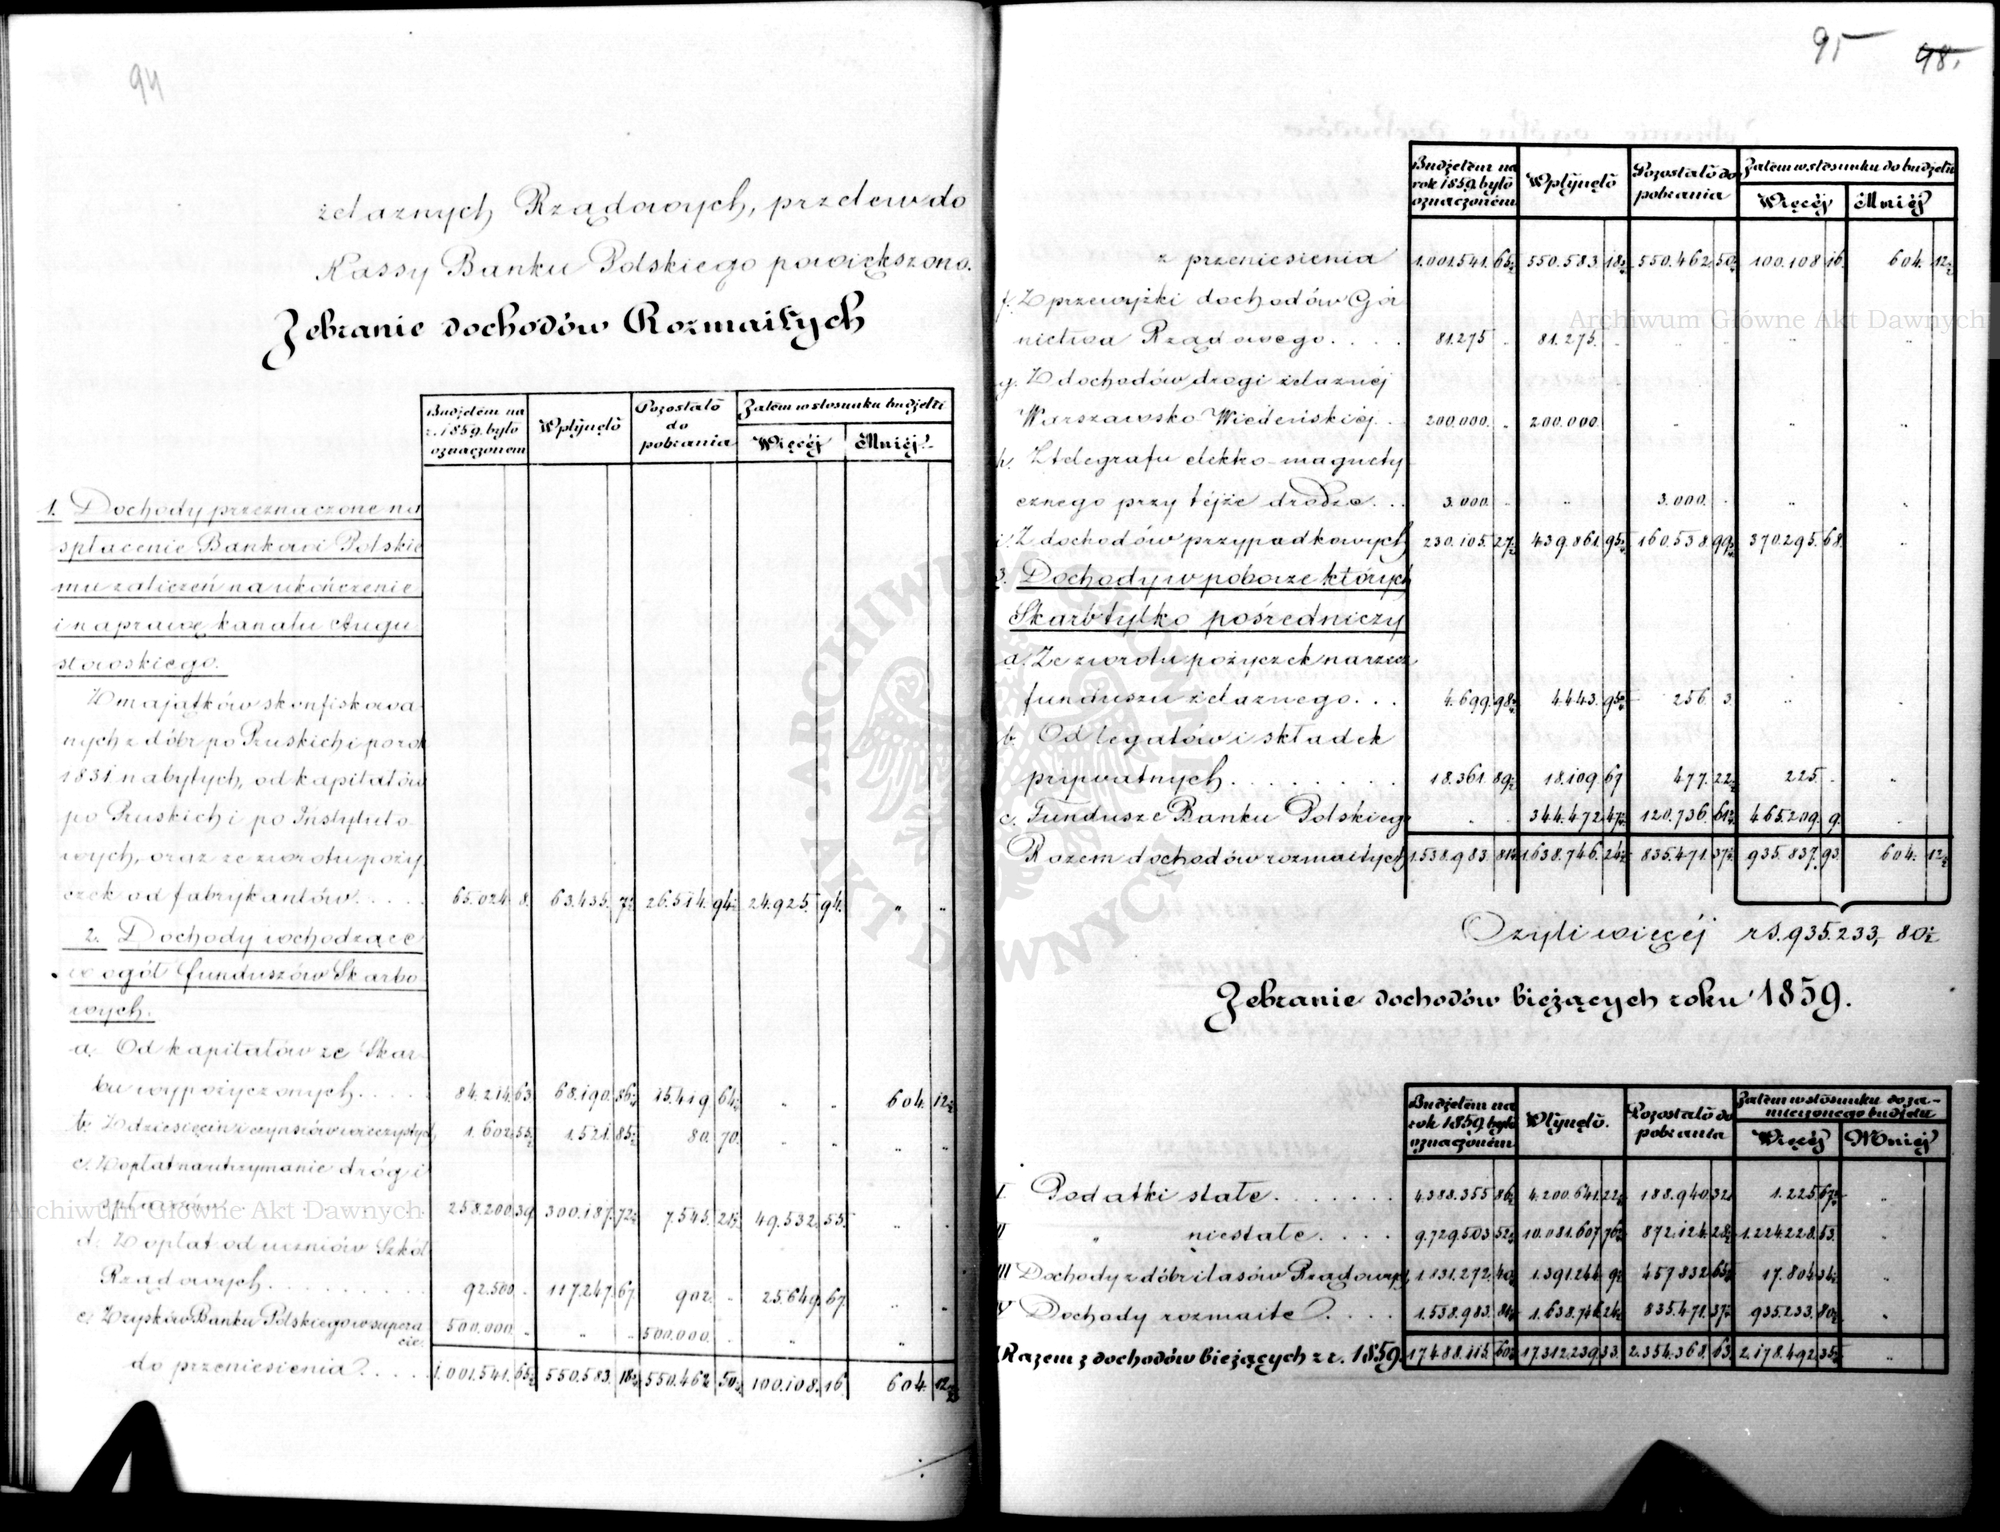 94
żelaznych Rządowych, przelewdo
Kassy Banku Polskiego powiększono.
Zebranie dochodów Rozmaitych
Budżetem na r. 1859. było oznaczonem | Wpłynęło | Pozostało do pobrania | Zatem w stosunku budżetu
Więcéj | Mniéj
1. Dochody przeznaczone na
spłacenie Bankowi Polskie
mu zaliczeń na ukończenie
i naprawę kanału Augu
stowskiego.
Z majątków skonfiskowa
nych z dóbr po Pruskich i po rok
1831 nabytych, od kapitałów
po Pruskich i po Instytuto
wych, oraz ze zwrotu poży
czek od fabrykantów. 65.024. 8. 63.435. 7½ 26.514. 94½ 24.925. 94. " "
2. Dochody wchodzące
w ogół funduszów Skarbo
wych.
a. Od kapitałów ze Skar
bu wypożyczonych. 84.214. 63. 68.190. 86½ 15.419. 64½ " " 604. 12½
b. Z dziesięcin i czynszów wieczystych 1.602. 55½ 1.521. 85½ 80. 70. " " " "
c. Z opłat na utrzymanie dróg i
spławów. 258.200. 39. 300.187. 72½ 7.545. 21½ 49.532. 55. " "
d. Z opłat od uczniów Szkół
Rządowych. 92.500. " 117.247. 67. 902. " 25.649. 67. " "
e. Z zysków Banku Polskiego w supera
cie. 500.000. " " " 500.000. " " " "
do przeniesienia. 1.001.541. 65½ 550.583. 18½ 550.462. 50½ 100.108. 16. 604. 12½
95 98.
Budżetem na rok 1859. było oznaczoném | Wpłynęło | Pozostało do pobrania | Zatem w stosunku do budżetu
Więcéj | Mniéj
z przeniesienia 1.001.541. 65½ 550.583. 18½ 550.462. 50½ 100.108. 16. 604. 12½
f. Z przewyżki dochodów Gór
nictwa Rządowego. 81.275 " 81.275. " " " " "
g. Z dochodów drogi żelaznéj
Warszawsko Wiedeńskiéj. 200.000. " 200.000. " " " "
h. Z telegrafu elektro-magnety
cznego przy téjże drodze. 3.000. " " 3.000. " " "
i. Z dochodów przypadkowych 230.105. 27½ 439.861. 95½ 160.538. 99½ 370.295. 68. "
3. Dochody w poborze których
Skarb tylko pośredniczy
a. Ze zwrotu pożyczek na rzecz
funduszu żelaznego. 4.699. 98½ 4.443. 95½ 256. 3. " "
b. Od legatów i składek
prywatnych. 18.361. 89½ 18.109. 67 477. 22½ 225. " "
c. Fundusze Banku Polskieg " " 344.472. 47½ 120.736. 61½ 465.209. 9. "
Razem dochodów rozmaitych 1.538.983. 81½ 1.638.746. 24½ 835.471. 37½ 935.837. 93. 604. 12½
Czyli więcéj rs. 935.233, 80½
Zebranie dochodów bieżących roku 1859.
Budżetem na rok 1859 było oznaczoném | Wpłynęło. | Pozostało do pobrania | Zatem w stosunku do za- mierzonego budżetu
Więcéj | Mniéj
I Podatki stałe. 4.388.355 86½ 4.200.641. 22½ 188.940. 32. 1.225 67½ "
II " niestałe. 9.729.503 52½ 10.081.607 76½ 872.124. 28½ 1.224.228. 53. "
III Dochody z dóbr i lasów Rządowych 1.831.272. 40½ 1.391.244. 9½ 457.832 65½ 17.804. 34½ "
IV Dochody rozmaite. 1.538.983. 81½ 1.638.746 24½ 835.471. 37½ 935.233. 80½ "
Razem z dochodów bieżących z r. 1859. 17.488.115. 60½ 17.312.239 33. 2.354.368. 63. 2.178.492. 35½ "
Archiwum Główne Akt Dawnych
Archiwum Główne Akt Dawnych
ARCHIWUM GŁÓWNE AKT DAWNYCH